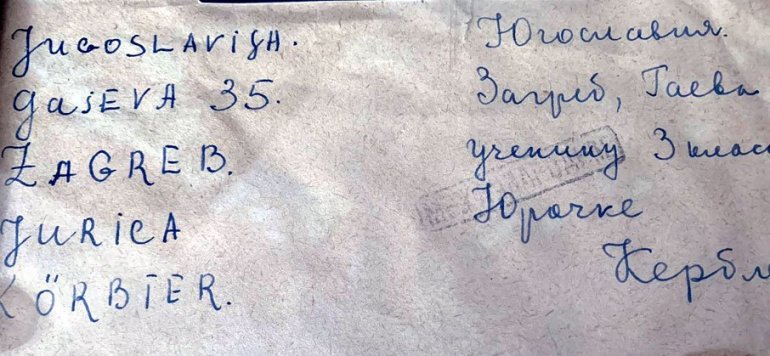 JUGOSLAVIJA.
GAJEVA 35.
ZAGREB.
JURICA
KÖRBIER.
Югославия.
Загреб, Гаева
ученику 3 клас
Юрочке
Кербл